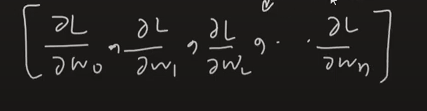 [∂L/∂w₀, ∂L/∂w₁, ∂L/∂w₂, . . ∂L/∂wₙ]